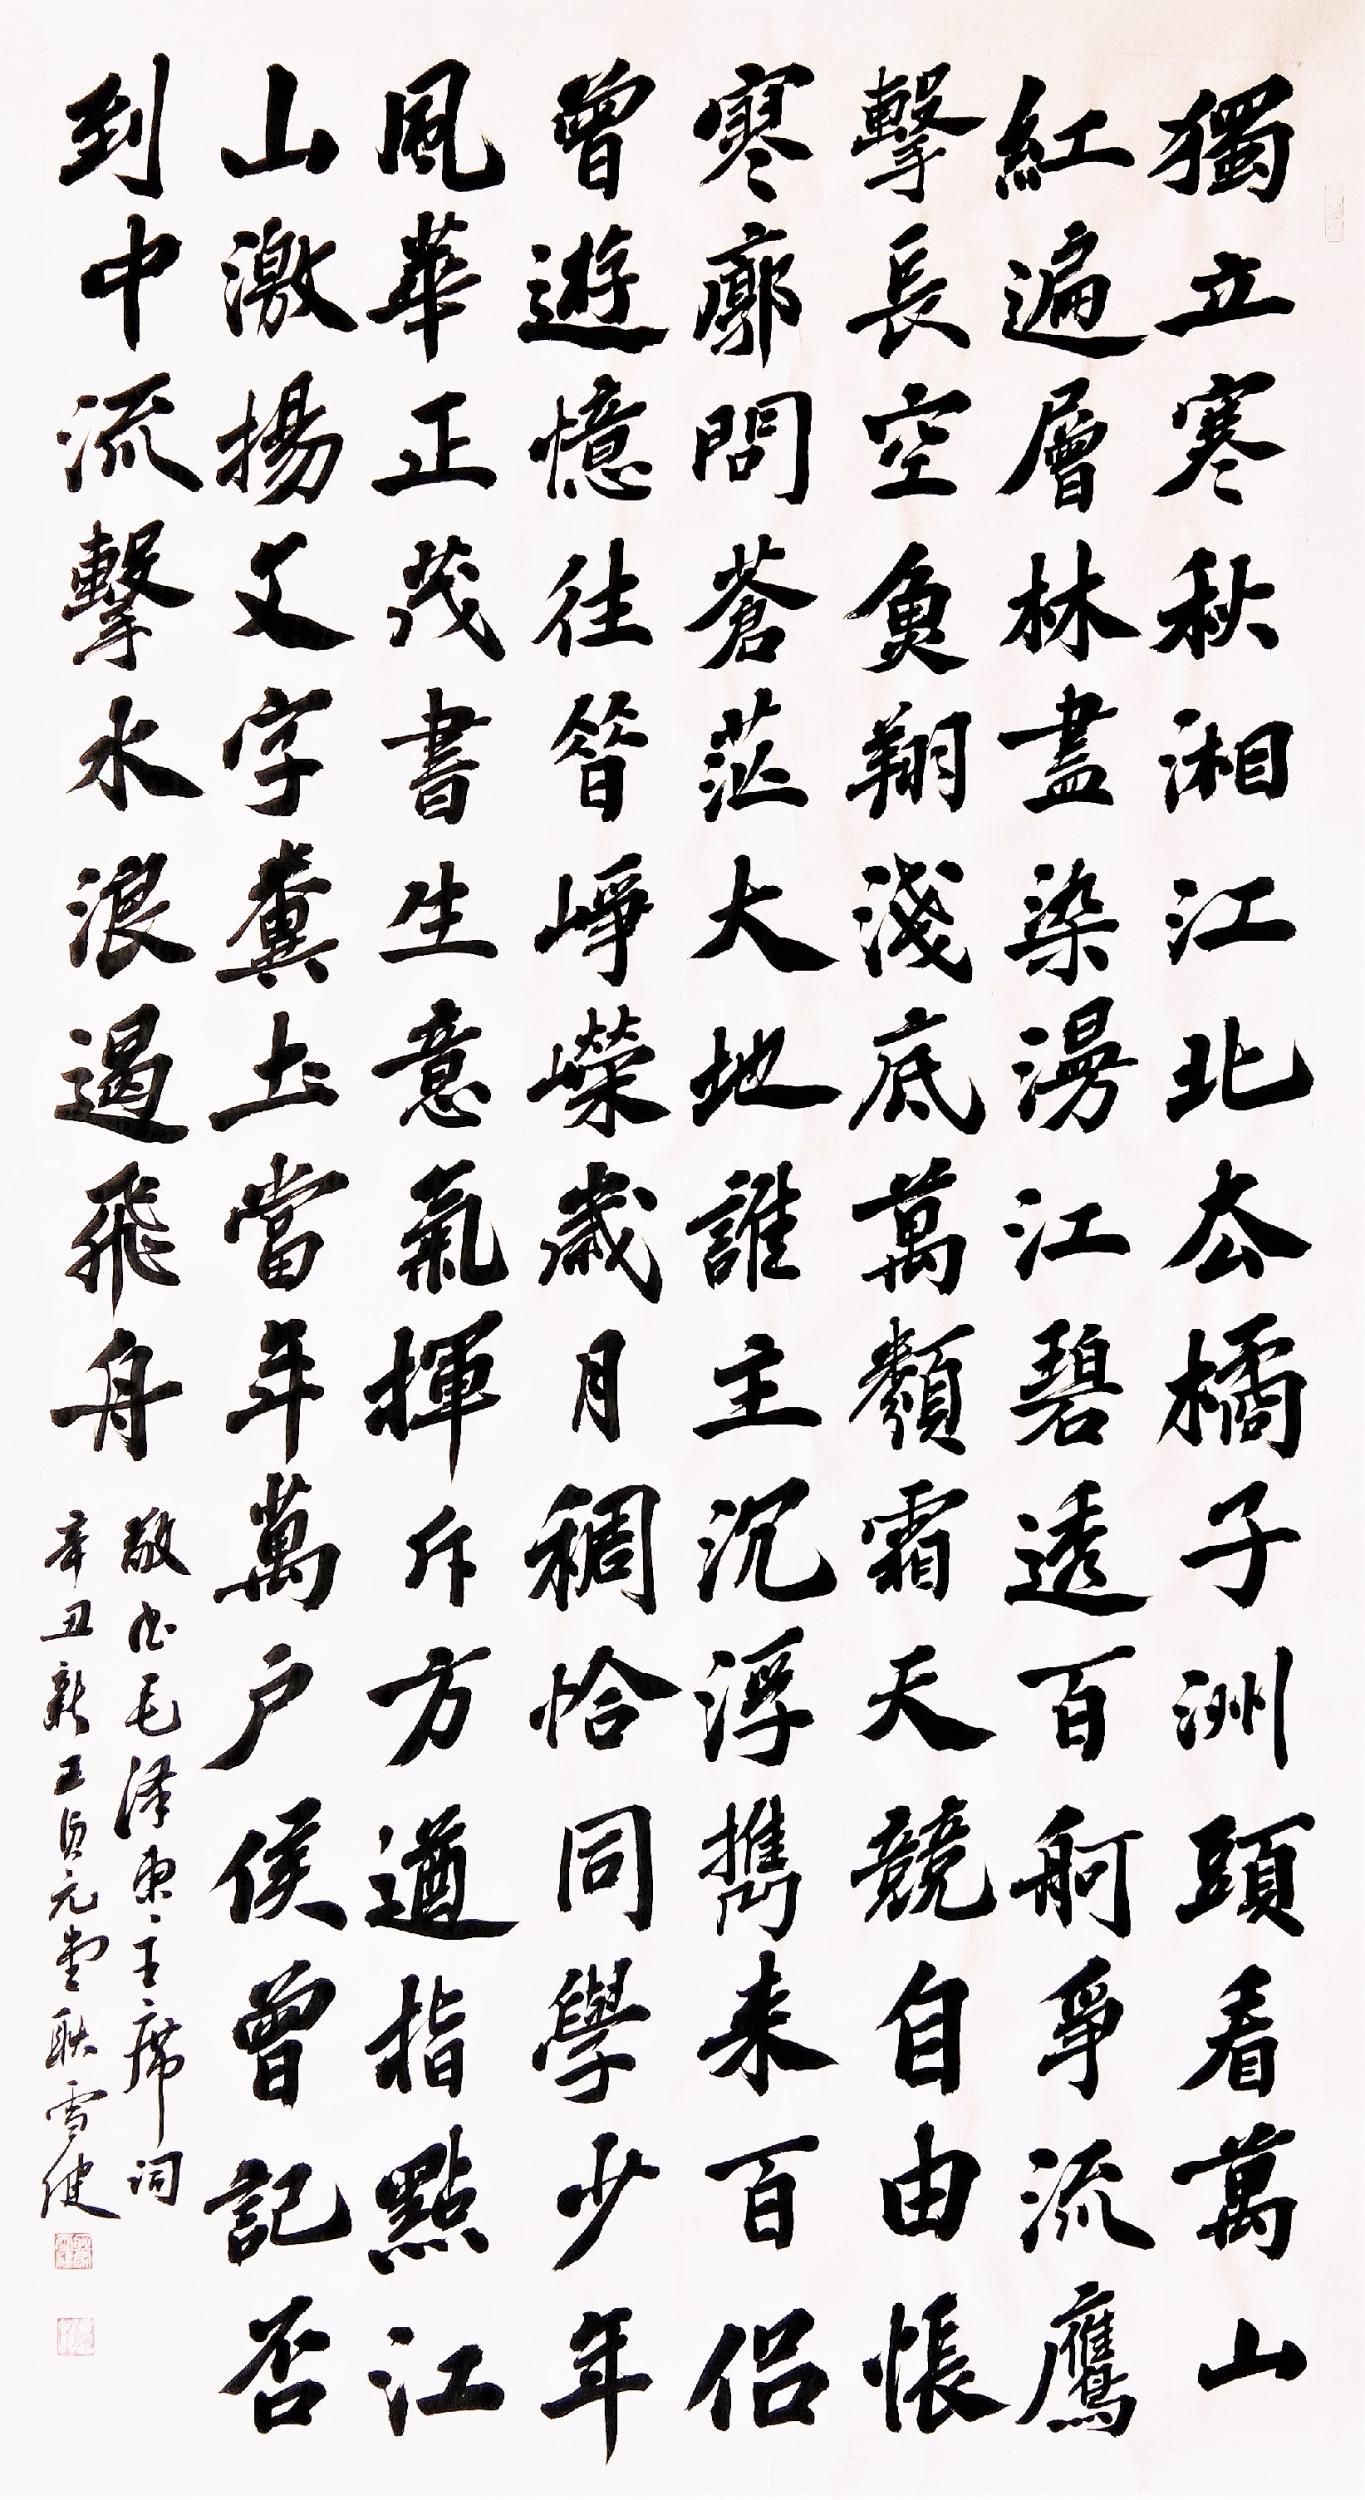 獨立寒秋湘江北去橘子洲頭看萬山
紅遍層林盡染漫江碧透百舸爭流鷹
擊長空魚翔淺底萬類霜天競自由悵
寥廓問蒼茫大地誰主沉浮攜来百侣
曾遊憶往昔崢嶸歲月稠恰同學少年
風華正茂書生意氣揮斥方遒指點江
山激揚文字糞土當年萬户侯曾記否
到中流擊水浪遏飛舟
敬书毛泽東主席词
辛丑新正貞元堂耿雪健